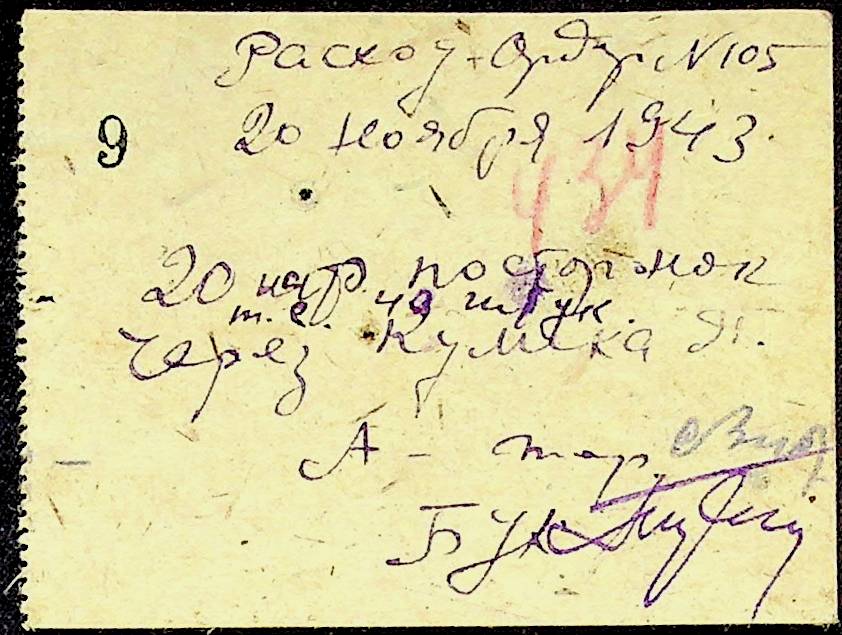 Расход-Ордер N 105
9
20 Ноября 1943.
434
20 пар посторонок
т.е. 40 штук.
Через Кумека
А-
Бух